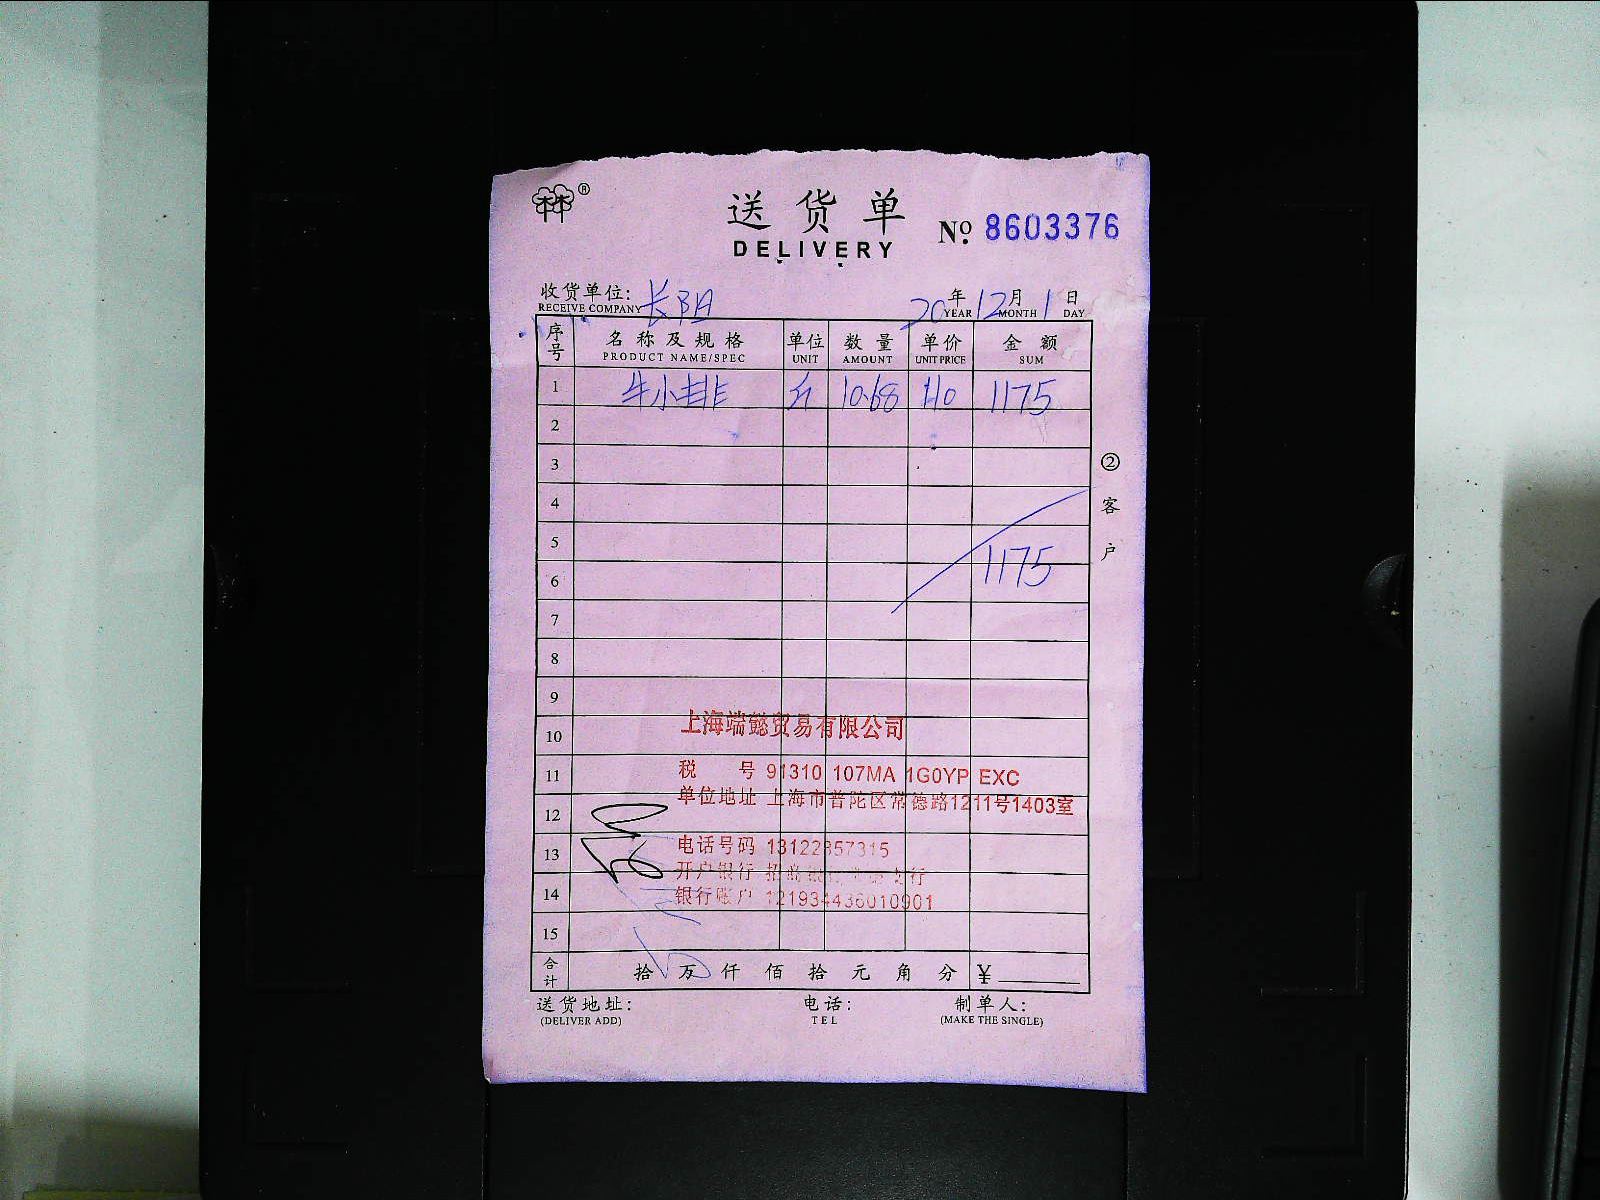 林®
送货单
DELIVERY
No. 8603376
收货单位: 长阳 20年12月1日
RECEIVE COMPANY YEAR MONTH DAY
序号 名称及规格 单位 数量 单价 金额
PRODUCT NAME/SPEC UNIT AMOUNT UNIT PRICE SUM
1 牛小排 斤 10.68 110 1175
2
3
4
5
1175
6
7
8
9
10
11
12
13
14
15
②客户
上海端懿贸易有限公司
税 号 91310 107MA 1G0YP EXC
单位地址 上海市普陀区常德路1211号1403室
电话号码 13122857315
开户银行 招商银行 支行
银行账户 121934436010901
合计 拾万仟佰拾元角分 ¥
送货地址: 电话: 制单人:
(DELIVER ADD) TEL (MAKE THE SINGLE)